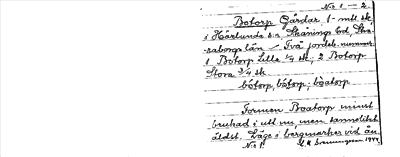 Nr 1 – 2.
Botorp Gårdar 1 mtl sk.
i Hörlunda s:n, Skånings hd, Ska-
raborgs län – Två jordeb. nummer:
1 Botorp Lilla 1/4 sk; 2 Botorp
Stora 3/4 sk
bótorp, bòtorp; bòatorp
Formen Boatorp minst
brukad i utt. nu, men sannolikt
äldst. Läge i bergmarker vid ån.
Nr 1.